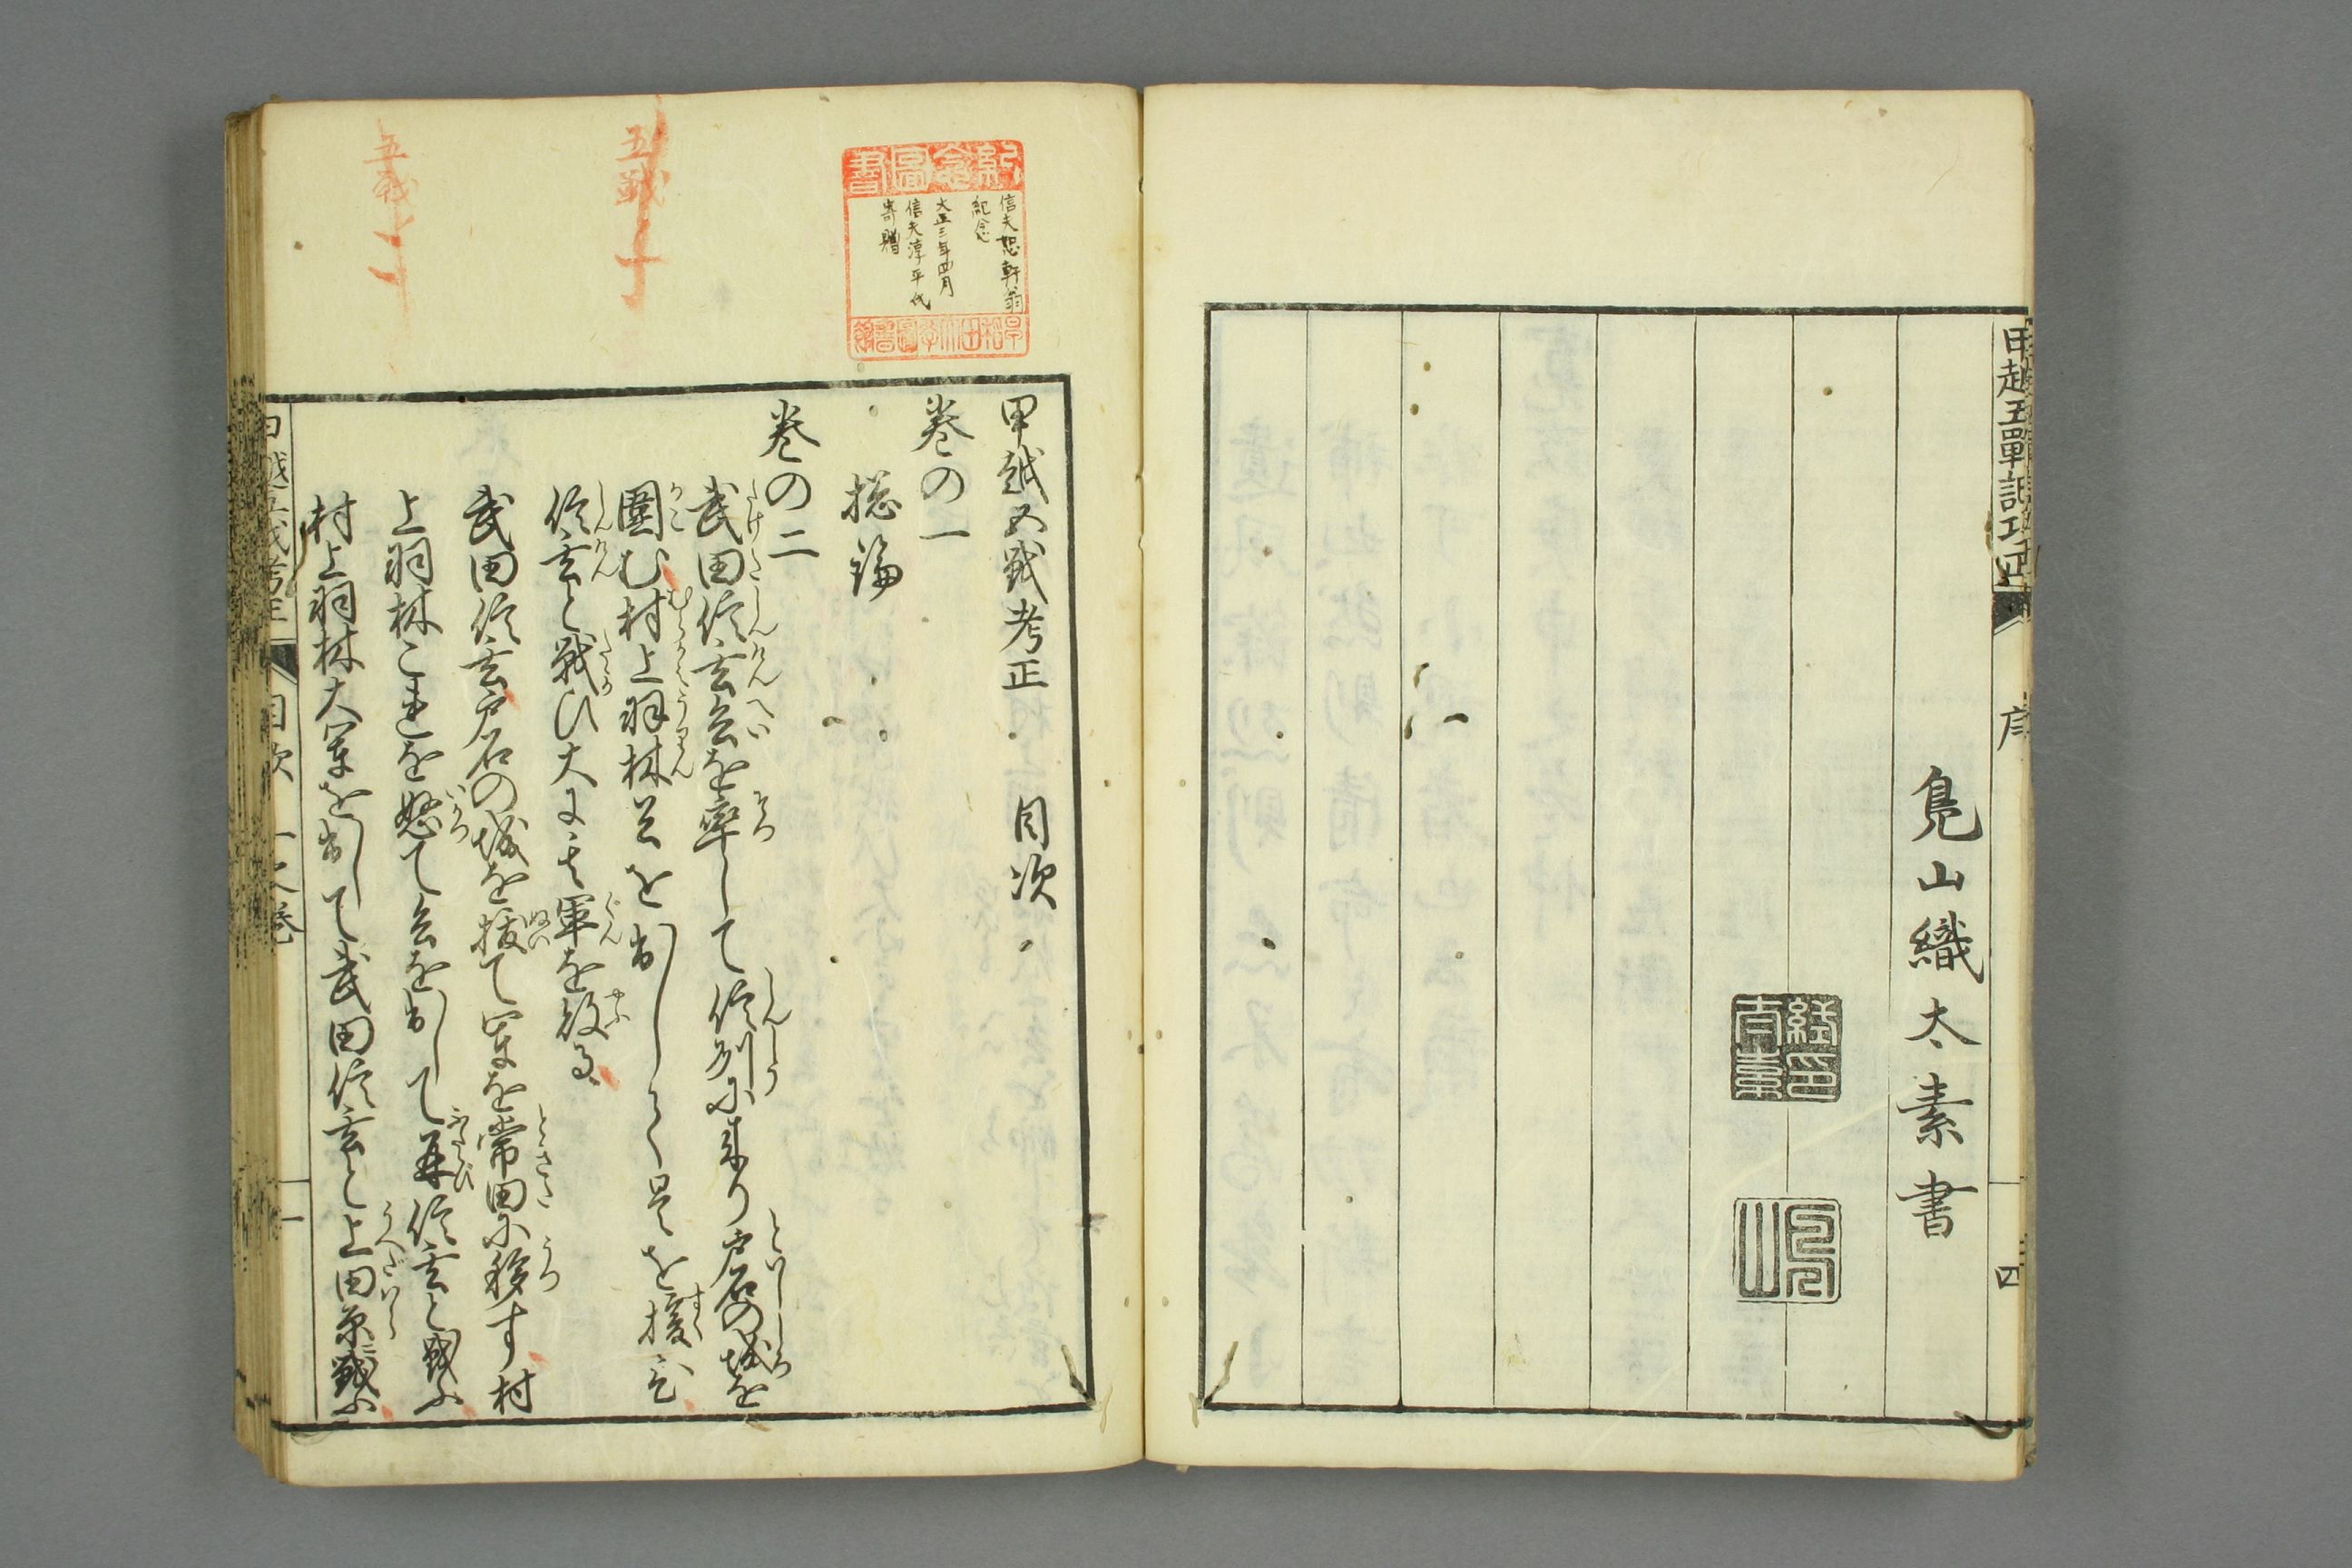 甲越五戰記巧正
序
四
鳬山織太素書
紀念圖書
信夫恕軒翁
紀念
大正三年四月
信夫淳平氏
寄贈
早稲田大学図書館
五戰
五戰
甲越五戦考正　目次
巻の一
総論
巻の二
武田信玄兵を率して信州に来り戸石の城を
圍む村上羽林兵を出して是を援ひ
信玄と戦ひ大に其軍を敗る
武田信玄戸石の城を抜て軍を常田に移す村
上羽林これを怒て兵を出して再信玄と戦ふ
村上羽林大軍を出して武田信玄と上田原に戦ふ
甲越五戦考正　目次　一之巻　一